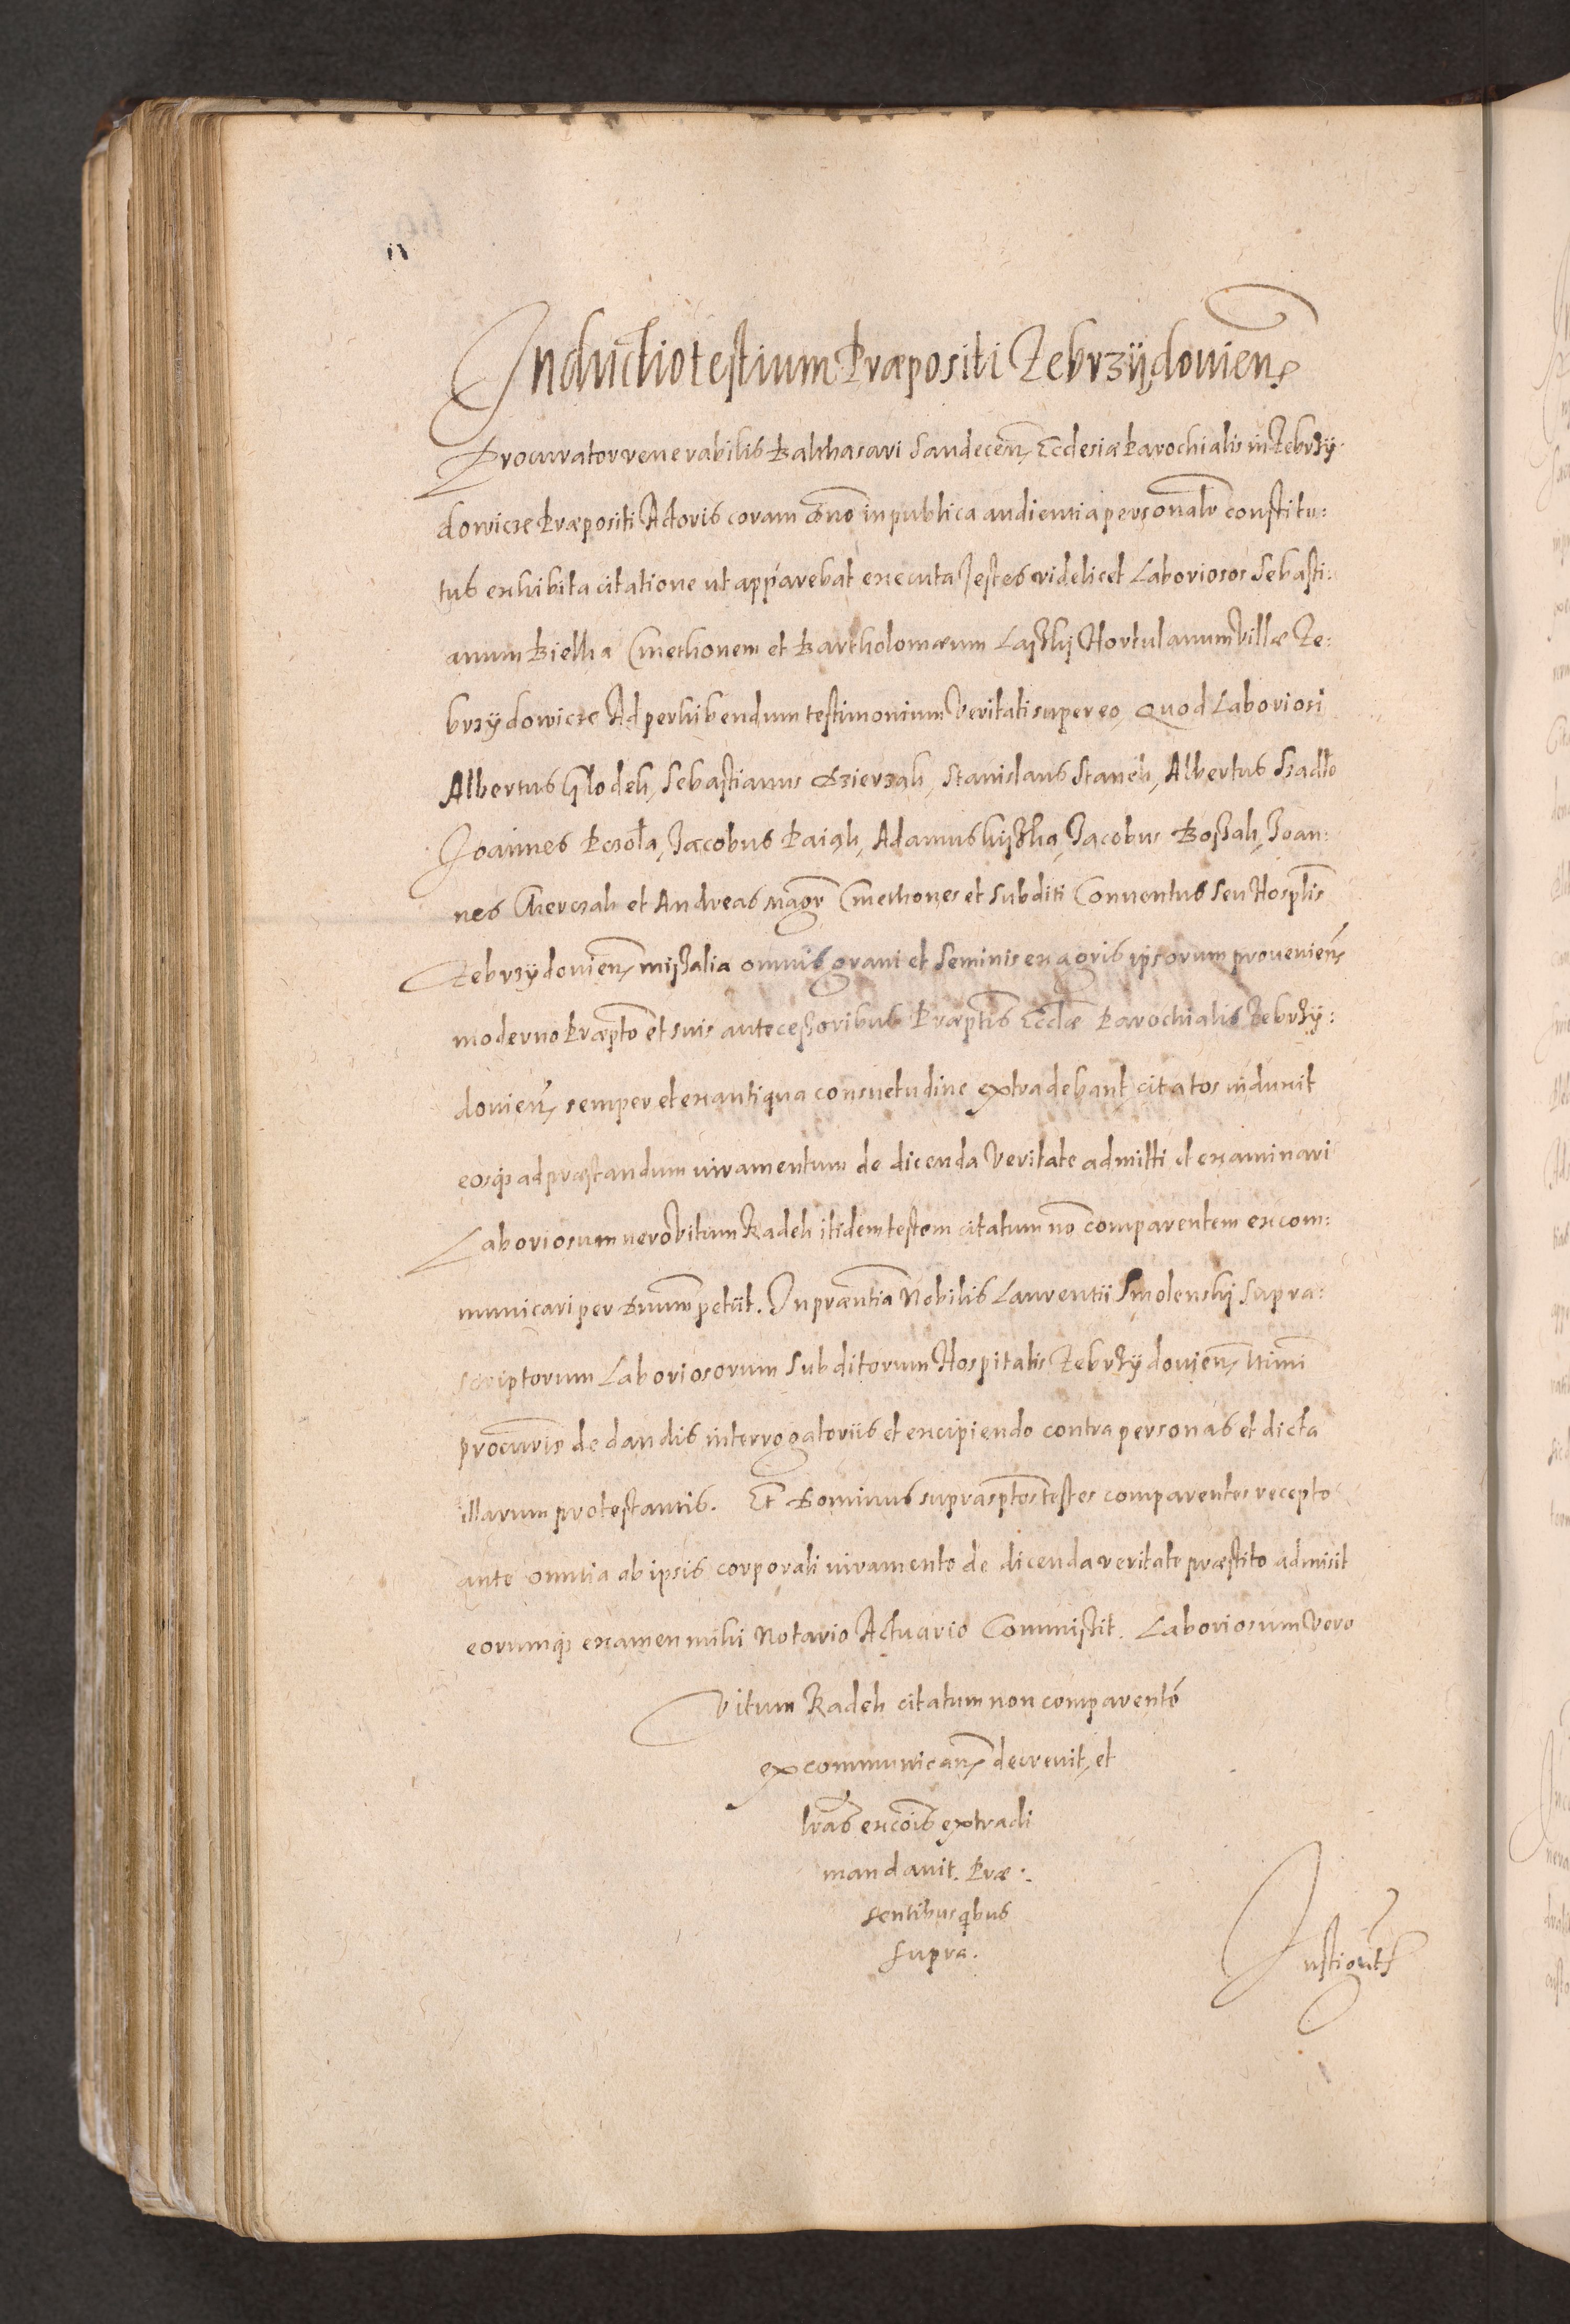 Inductio testium Præpositi Zebrzÿdouien̄
Procurator venerabilis Balthasari Sandecen̄ Ecclesiæ Parochialis in Zebrzÿ-
dowicze Præpositi Actoris coram dn̄o in publica audientia personalr̄ constitu:
tus exhibita citatione ut apparebat executa Testes videlicet Laboriosos Sebasti:
anum Cmethonem et Bartholomæum Hortulanum Villæ Ze:
brzÿdowicze Ad perhibendum testimonium Veritati super eo Quod Laboriosi
Albertus Glodek, Sebastianus Stanislaus Stanek, Albertus
Joannes Jacobus Adamus Jacobus Joan:
nes et Andreas Cmethones et Subditi Conuentus seu Hosplīs
Zebrzÿdouien̄ missalia omnis grani et seminis ex agris ipsorum prouenien̄
moderno Præpto et suis antecessoribus Præptis Eccliæ Parochialis Zebrzÿ:
douien̄ semper et ex antiqua consuetudine extradebant citatos induxit
eosq3 ad præstandum iuramentum de dicenda Veritate admitti et examinari
Laboriosum vero Vitum Radek itidem testem citatum nō comparentem excom:
municari per Dnum petiit. In præntia Nobilis Laurentii Smolenskÿ supra:
scriptorum Laboriosorum Subditorum Hospitalis Zebrzÿdouien̄ ltimi
procuris de dandis interrogatoriis et excipiendo contra personas et dicta
illarum protestantis. Et Dominus suprasptos testes comparentes recepto
ante omnia ab ipsis corporali iuramento de dicenda veritate præstito admisit
eorumq3 examen mihi Notario Actuario Commissit. Laboriosum Vero
Vitum Radek citatum non comparentē
excommunican̄ decreuit, et
lras excois extradi
mandauit. Præ:
sentibus q̄bus
supra.